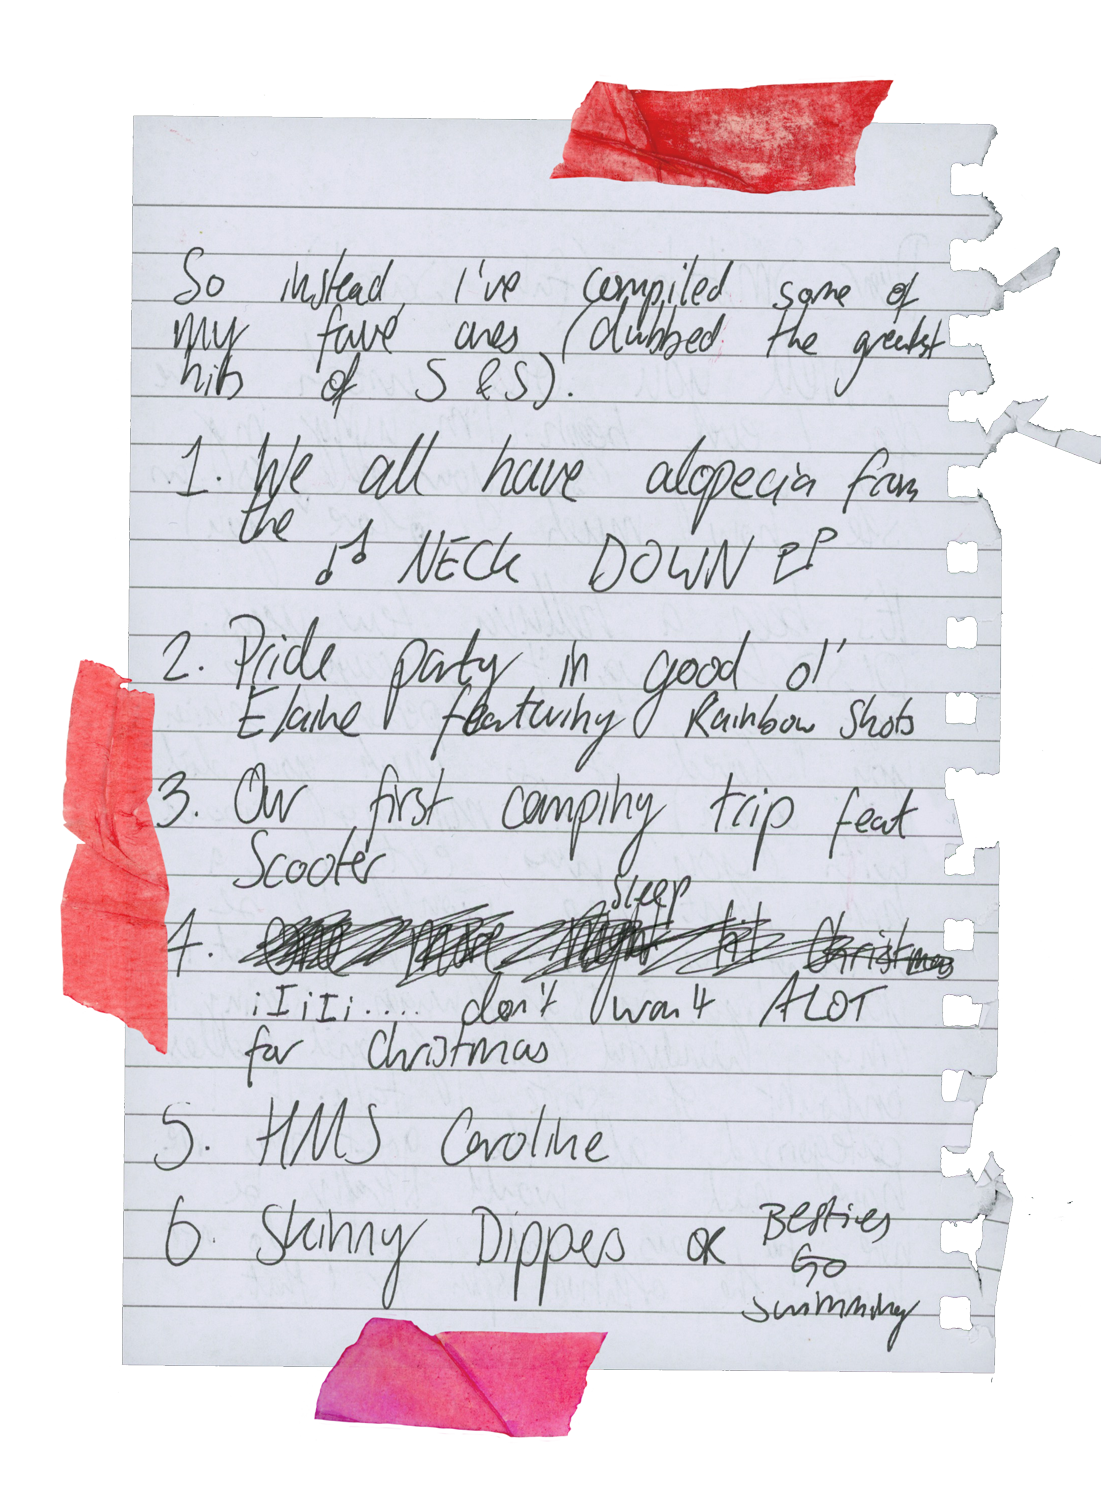 So instead, I've compiled some of
my fave ones (dubbed the greatest
hits of S & S).
1. We all have alopecia from
the
♪♩ NECK DOWN EP
2. Pride party in good ol'
Elaine featuring Rainbow Shots
3. Our first camping trip feat
Scooter
sleep
4. One more night til Christmas
iIiIi.... don't want ALOT
for Christmas
5. HMS Caroline
6. Skinny Dippers OR Besties
Go
swimming